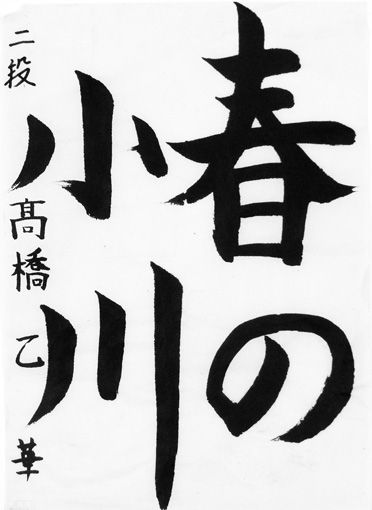 春の
小川
二段 髙橋乙華